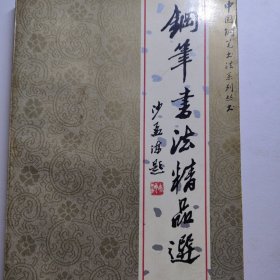 中国钢笔书法系列丛书
鋼筆書法精品選
沙孟海題